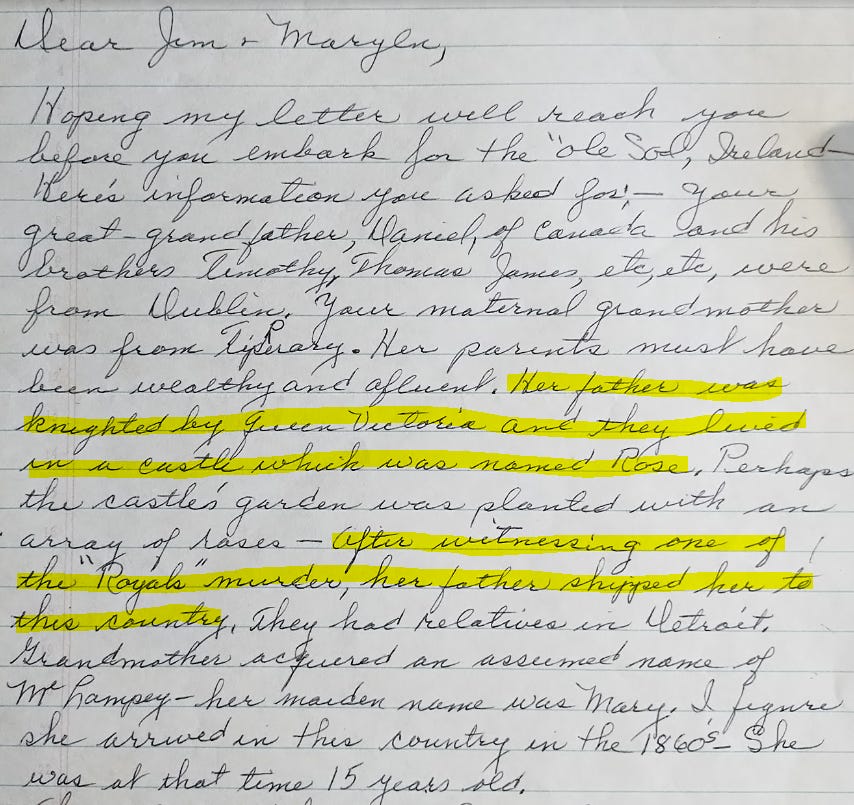 Dear Jim + Maryln,
Hoping my letter will reach you
before you embark for the "ole Sod, Ireland—
Here's information you asked for,— Your
great-grandfather, Daniel, of Canada and his
brothers Timothy, Thomas James, etc, etc, were
from Dublin. Your maternal grandmother
was from Tipperary. Her parents must have
been wealthy and afluent. Her father was
knighted by Queen Victoria and they lived
in a castle which was named Rose. Perhaps
the castle's garden was planted with an
array of roses — After witnessing one of
the "Royals" murder, her father shipped her to
this country. They had relatives in Detroit.
Grandmother acquered an assumed name of
Mc Lampey — her maiden name was Mary. I figure
she arrived in this country in the 1860s — She
was at that time 15 years old.